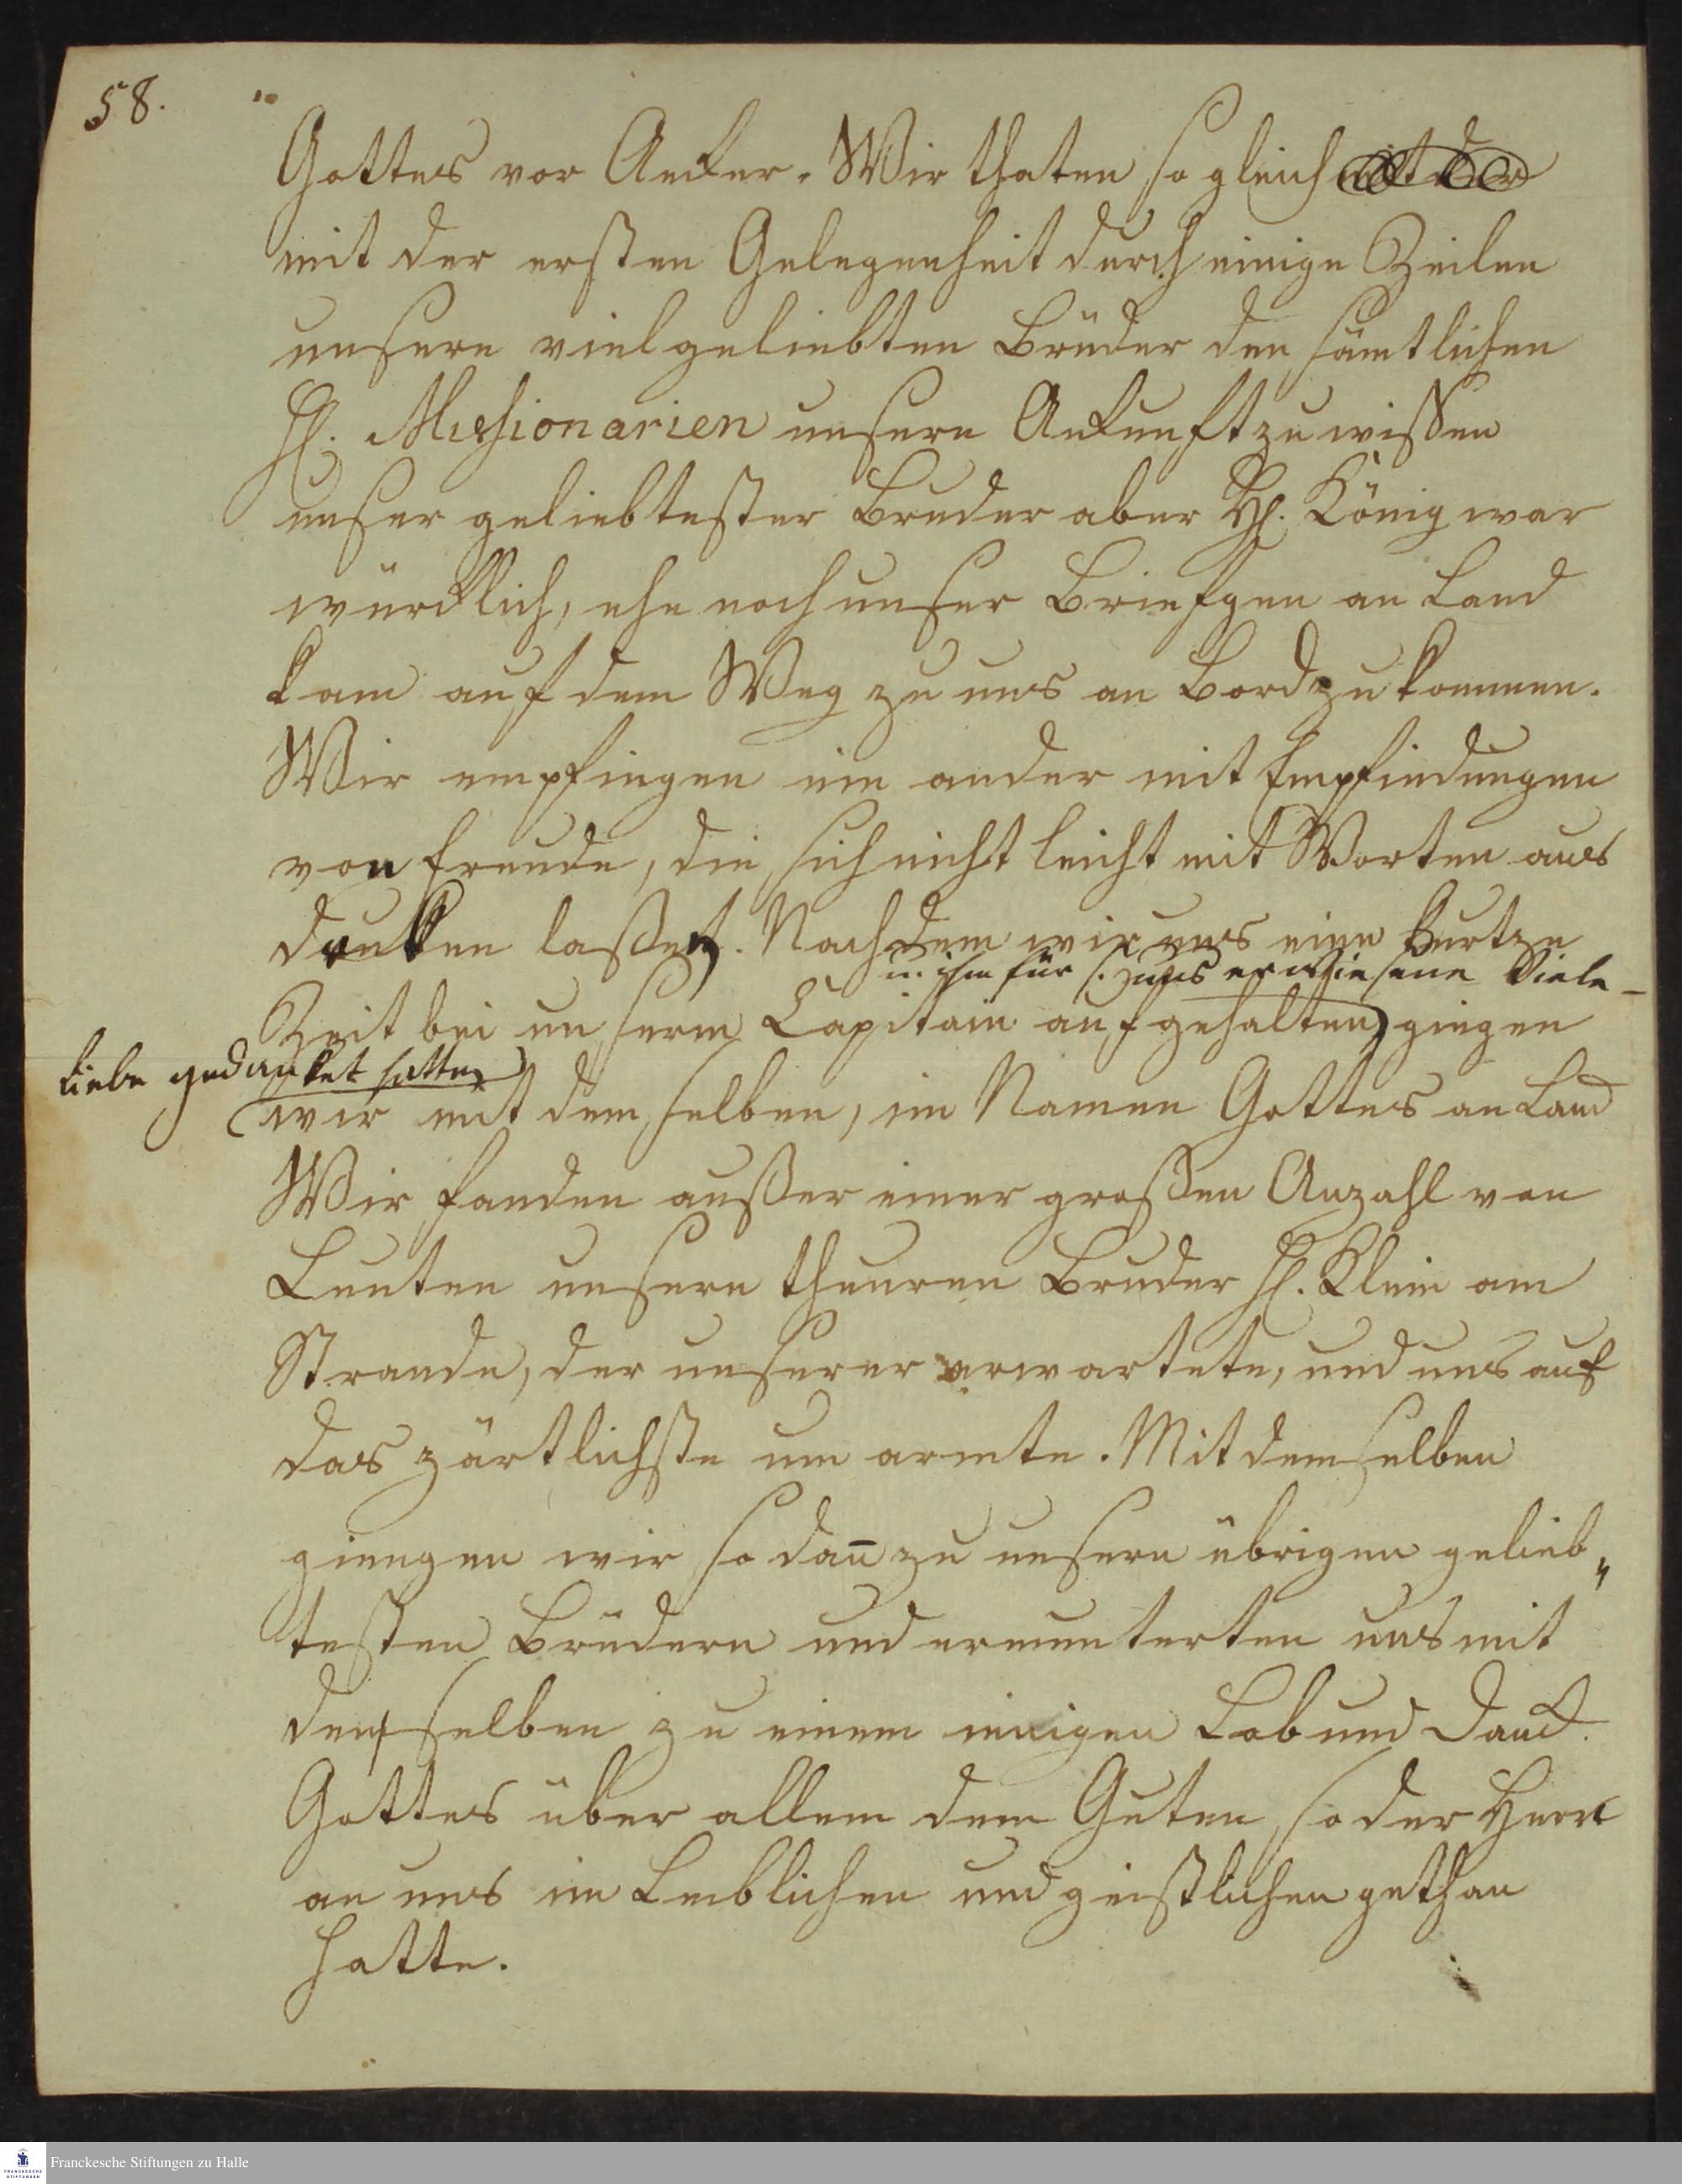 58.
Gottes vor Anker. Wir thaten so gleich mit der
mit der ersten Gelegenheit durch einige Zeilen
unsern vielgeliebten Brüder den sämtlichen
H. Missionarien unsere Ankunft zu wissen
unser geliebtester Bruder aber H. König war
würcklich, ehe noch unser Briefgen an Land
kam auf dem Weg zu uns an Bord zu kommen.
Wir empfingen ein ander mit Empfindungen
von Freude, die sich nicht leicht mit Worten aus
druken laßen. Nachdem wir uns eine kurtze
u. ihm für s. zu uns erwiesene Viele
Zeit bei unserm Capitain aufgehalten, giengen
Liebe gedanket hatten
wir mit demselben, im Namen Gottes an Land
Wir fanden außer einer großen Anzahl von
Leuten unsern theuren Bruder H. Klein am
Strande, der unserer erwartete, und uns auf
das zärtlichste um armte. Mit demselben
giengen wir so dan̄ zu unsern übrigen gelieb„
testen Brüdern und ermunterten uns mit
denselben zu einem innigen Lob und Danck
Gottes über allem dem Guten, so der Herr
an uns im Leiblichen und geistlichen gethan
hatte.
Franckesche Stiftungen zu Halle
FRANCKESCHE
STIFTUNGEN